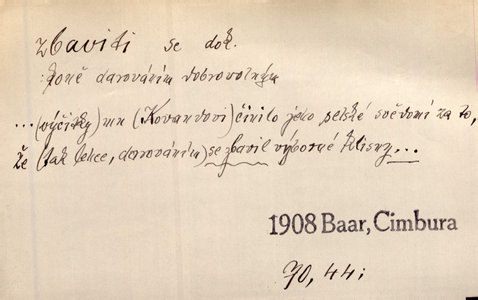 zbaviti se dok.
koně darováním dobrovolným
... (výčitky) mu (Kovandovi) činilo jeho selské svědomí za to,
že (tak lehce, darováním) se zbavil výborné klisny ...
1908 Baar, Cimbura
70, 44;